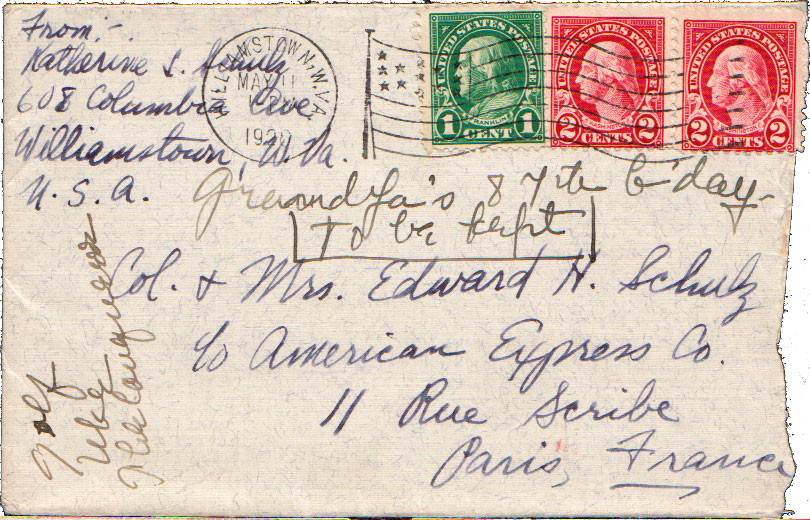 From:-
Katherine S. Schulz
608 Columbia Ave
Williamstown, W. Va.
U. S. A.
WILLIAMSTOWN, W. VA.
MAY 11
UNITED STATES POSTAGE
FRANKLIN
1 CENT 1
UNITED STATES POSTAGE
WASHINGTON
2 CENTS 2
UNITED STATES POSTAGE
2 CENTS 2
Grandpa's 87th b'day-
To be kept
Col. & Mrs. Edward H. Schulz
c/o American Express Co.
11 Rue Scribe
Paris, France
Golf
like